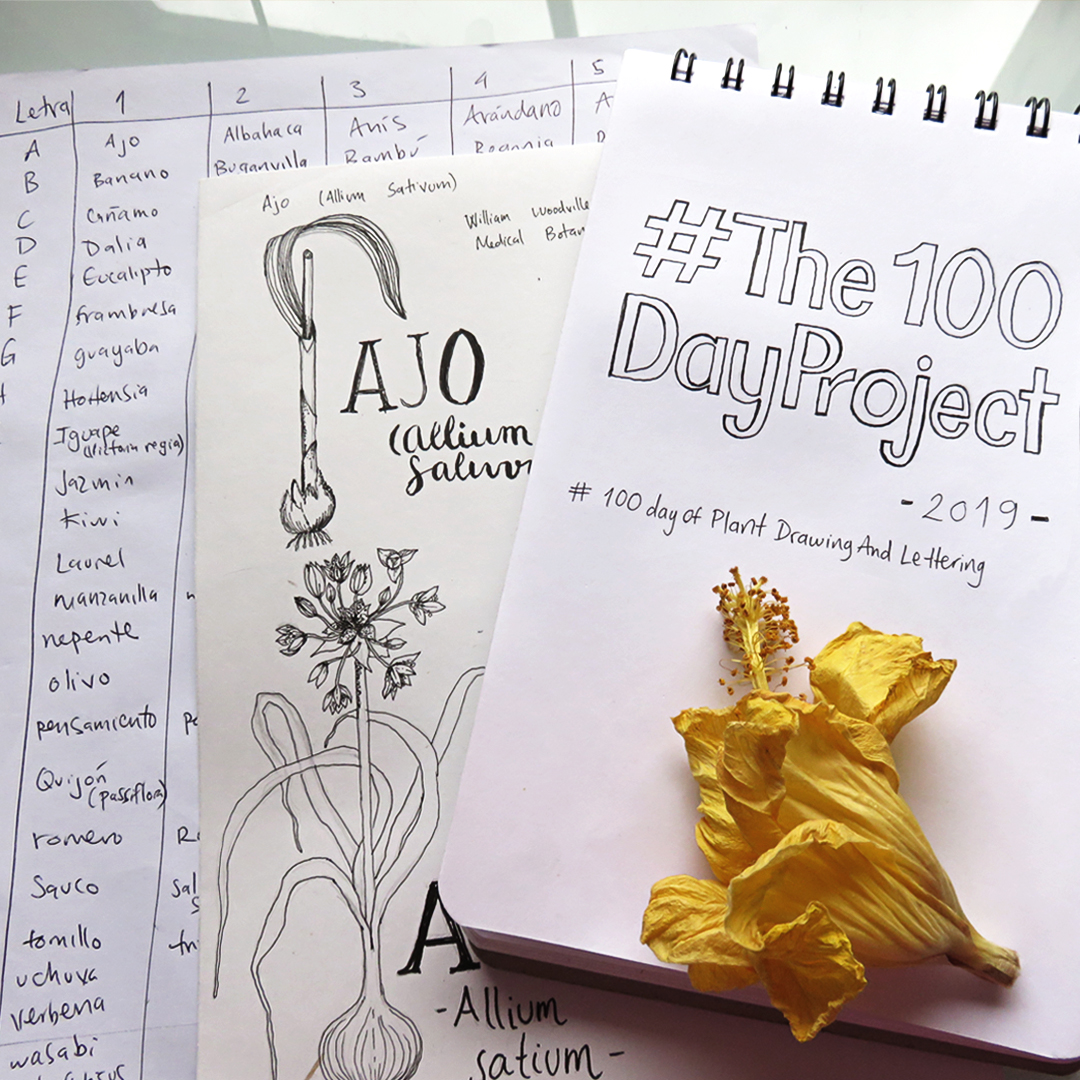 Letra 1 2 3 4 5
A Ajo Albahaca Anís Arándano A
B Banano Buganvilla Bambú Begonia
C Cañamo
D Dalia
E Eucalipto
F frambuesa
G guayaba
Hortensia
Iguape
(Victoria regia)
Jazmin
kiwi
Laurel
manzanilla
nepente
olivo
pensamiento
Quijón
(passiflora)
romero
Sauco
tomillo
uchuva
verbena
wasabi
Ajo (Allium Sativum)
William Woodville
Medical Botan
AJO
(allium
Sativu
A
-Allium
satium-
#The100
DayProject
-2019-
# 100 day of Plant Drawing And Lettering